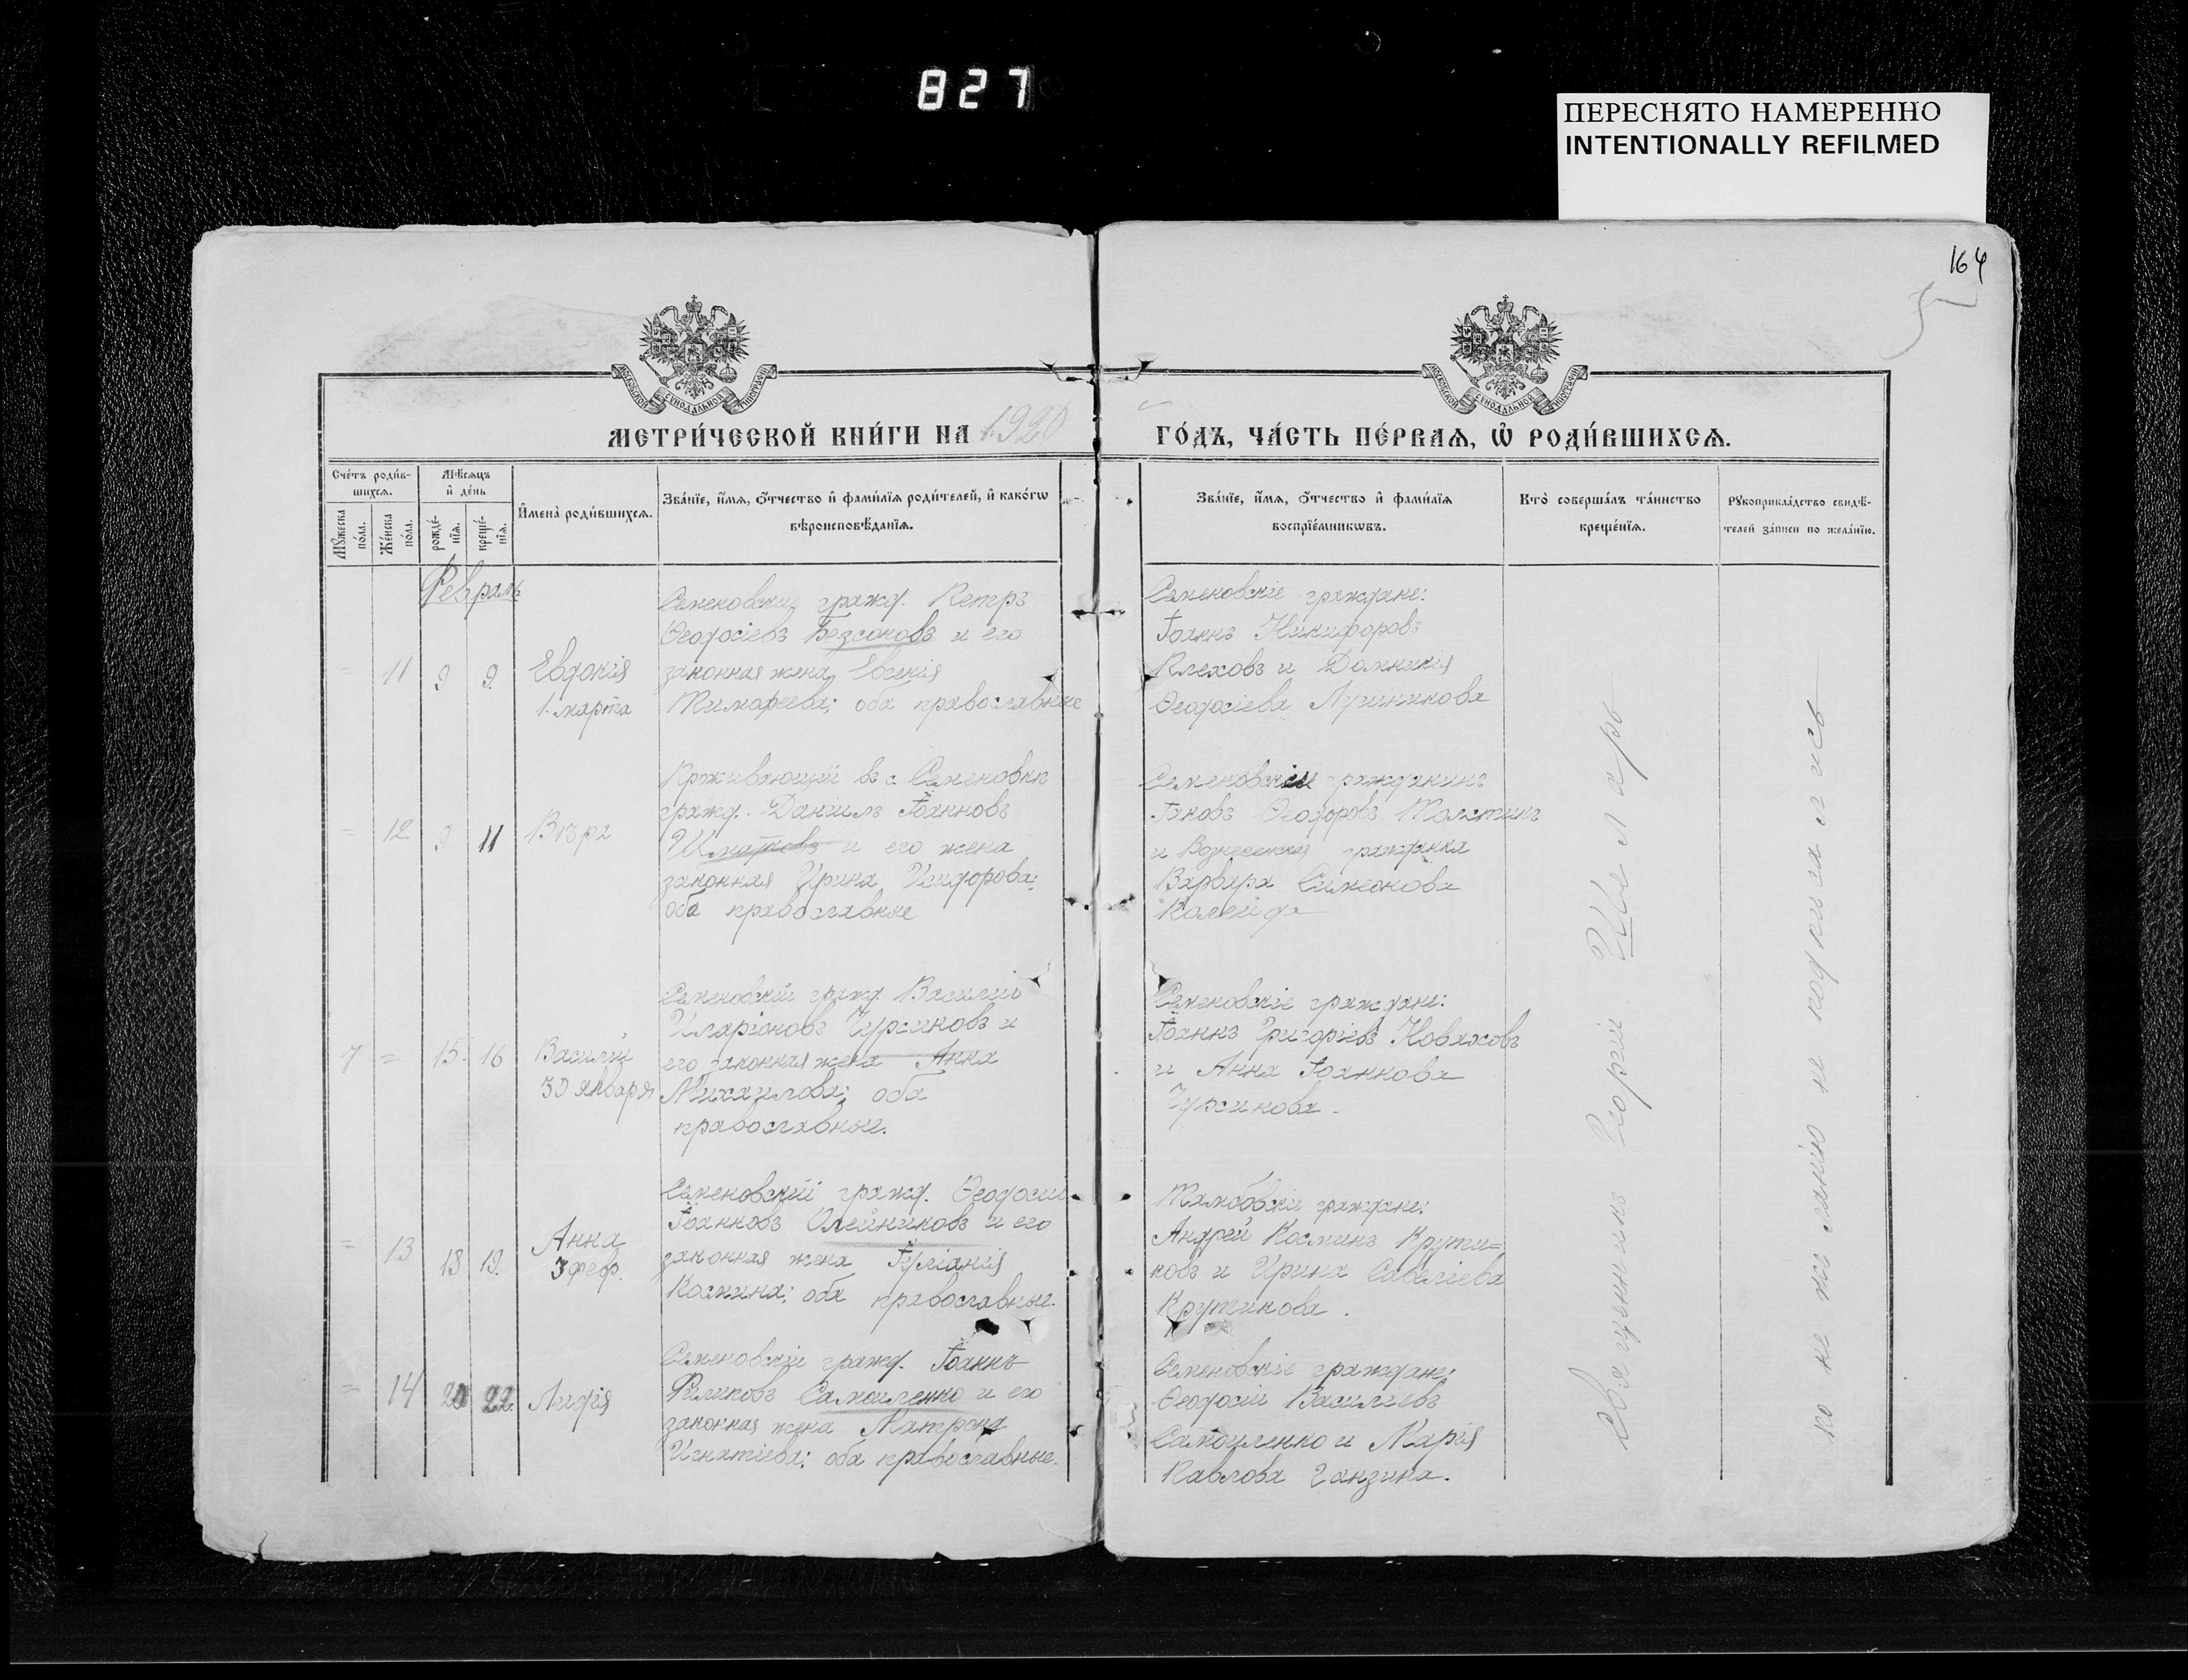 827
ПЕРЕСНЯТО НАМЕРЕННО
INTENTIONALLY REFILMED
164
МОСКОВСКОЙ СѴНОДАЛЬНОЙ ТИПОГРАФІИ
МОСКОВСКОЙ СѴНОДАЛЬНОЙ ТИПОГРАФІИ
МЕТРИ́ЧЕСКОЙ КНИ́ГИ НА 1920
ГО́ДЪ, ЧА́СТЬ ПЕ́РВАѦ, Ѽ РОДИ́ВШИХСѦ.
Сче́тъ роди́в-
шихсѧ.
Мѣ́сѧцъ
и҆ де́нь
Мꙋ́жеска
по́ла.
Же́нска
по́ла.
рожде́-
нїѧ.
креще́-
нїѧ.
И҆мена̀ роди́вшихсѧ.
Зва́нїе, и҆́мѧ, ѻ҆́тчество и҆ фами́лїѧ роди́телей, и҆ како́гѡ
вѣроисповѣ́данїѧ.
Зва́нїе, и҆́мѧ, ѻ҆́тчество и҆ фами́лїѧ
воспрїе́мникѡвъ.
Кто̀ соверша́лъ та́инство
креще́нїѧ.
Рꙋкоприкла́дство свидѣ́-
телей за́писи по жела́нїю.
Февраль
= 11 9 9. Евдокія
1. марта
Семеновскій гражд. Петръ
Ѳеодосіевъ Безсоновъ и его
законная жена Евгенія
Тимофеева; оба православные
Семеновскіе граждане:
Іоаннъ Никифоровъ
Плеховъ и Домникія
Ѳеодосіева Лушникова
= 12 9 11 Вѣра
Проживающій въ с. Семеновкѣ
гражд. Даніилъ Іоанновъ
Шматковъ и его жена
законная Ирина Исидорова;
оба православные
Семеновскій гражданинъ
Іаковъ Ѳеодоровъ Толстикъ
и Вознесенская гражданка
Варвара Симеонова
Калейда
7 = 15. 16 Василій
30 января
Семеновскій гражд. Василій
Иларіоновъ Чурсиновъ и
его законная жена Анна
Михаилова; оба
православные.
Семеновскіе граждане:
Іоаннъ Григоріевъ Новаховъ
и Анна Іоаннова
Чурсинова.
= 13 18 19. Анна
3 фев.
Семеновскій гражд. Ѳеодосій
Іоанновъ Олейниковъ и его
законная жена Іуліанія
Космина; оба православные.
Тамбовскіе граждане:
Андрей Косминъ Крути=
ковъ и Ирина Савеліева
Крутикова.
= 14 20 22. Лидія
Семеновскій гражд. Іоаннъ
Филиповъ Самоиленко и его
законная жена Матрона
Игнатіева; оба православные.
Семеновскіе граждане:
Ѳеодосій Василіевъ
Самоиленко и Марія
Павлова Ганзина.
Священникъ Георгій
по не желанію не подписались